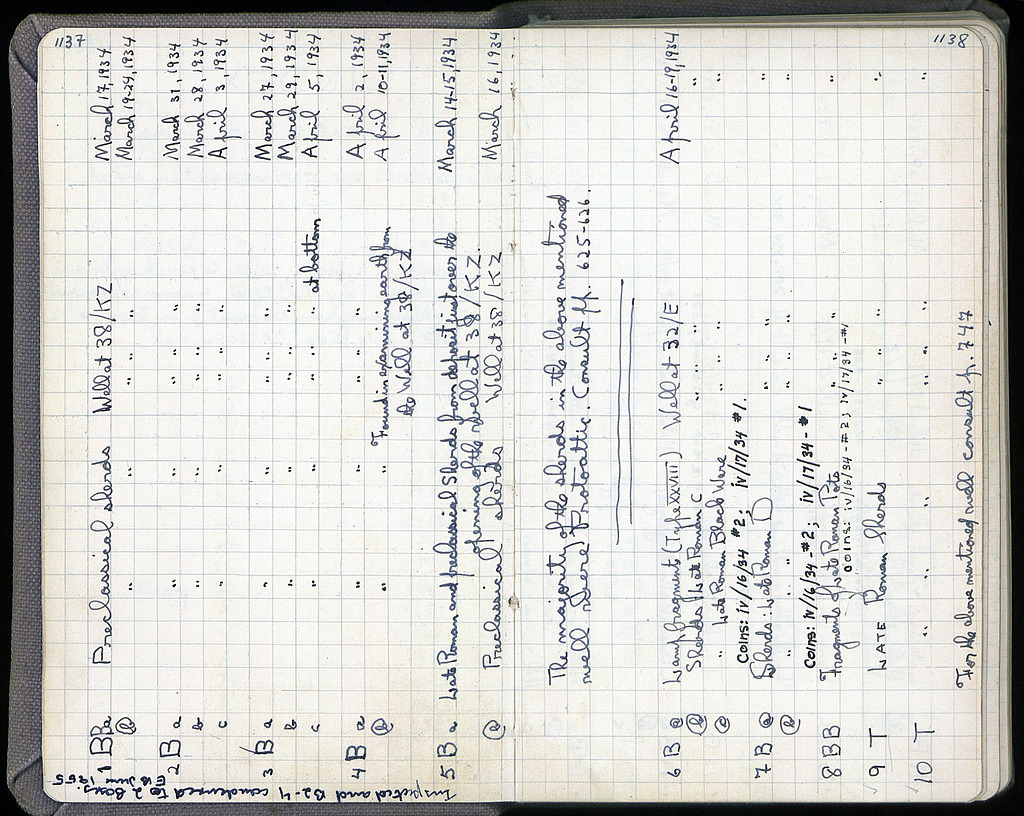 1137
Inspected and B2-4 condensed to 2 Boxes.
EB June 1955
1 BB a Preclassical sherds Well at 38/KZ March 17, 1934
b " " " " " March 19-24, 1934
2 B a " " " " " March 31, 1934
b " " " " " March 28, 1934
c " " " " " April 3, 1934
3 B a " " " " " March 27, 1934
b " " " " " March 29, 1934
c " " " " " at bottom April 5, 1934
4 B a " " " " " April 2, 1934
b " " Found in examining earth from the Well at 38/KZ April 10-11, 1934
5 B a Late Roman and preclassical Sherds from deposit just over the
opening of the well at 38/KZ. March 14-15, 1934
b Preclassical sherds Well at 38/KZ March 16, 1934
1138
The majority of the sherds in the above mentioned
well were Protoattic. Consult pp. 625-626.
6 B a Lamp fragment (Type XXVIII) Well at 32/E April 16-19, 1934
b Sherds: Late Roman C " " " "
c " Late Roman Black Ware " " "
Coins: iv/16/34 #2; iv/17/34 #1.
7 B a Sherds: Late Roman D " " " "
b " " " " " "
Coins: iv/16/34-#2; iv/17/34-#1
8 BB Fragments of Late Roman Pots " " " "
coins: iv/16/34-#2; iv/17/34-#1
9 T Late Roman Sherds " " " "
10 T " " " " " " "
For the above mentioned well consult p. 747